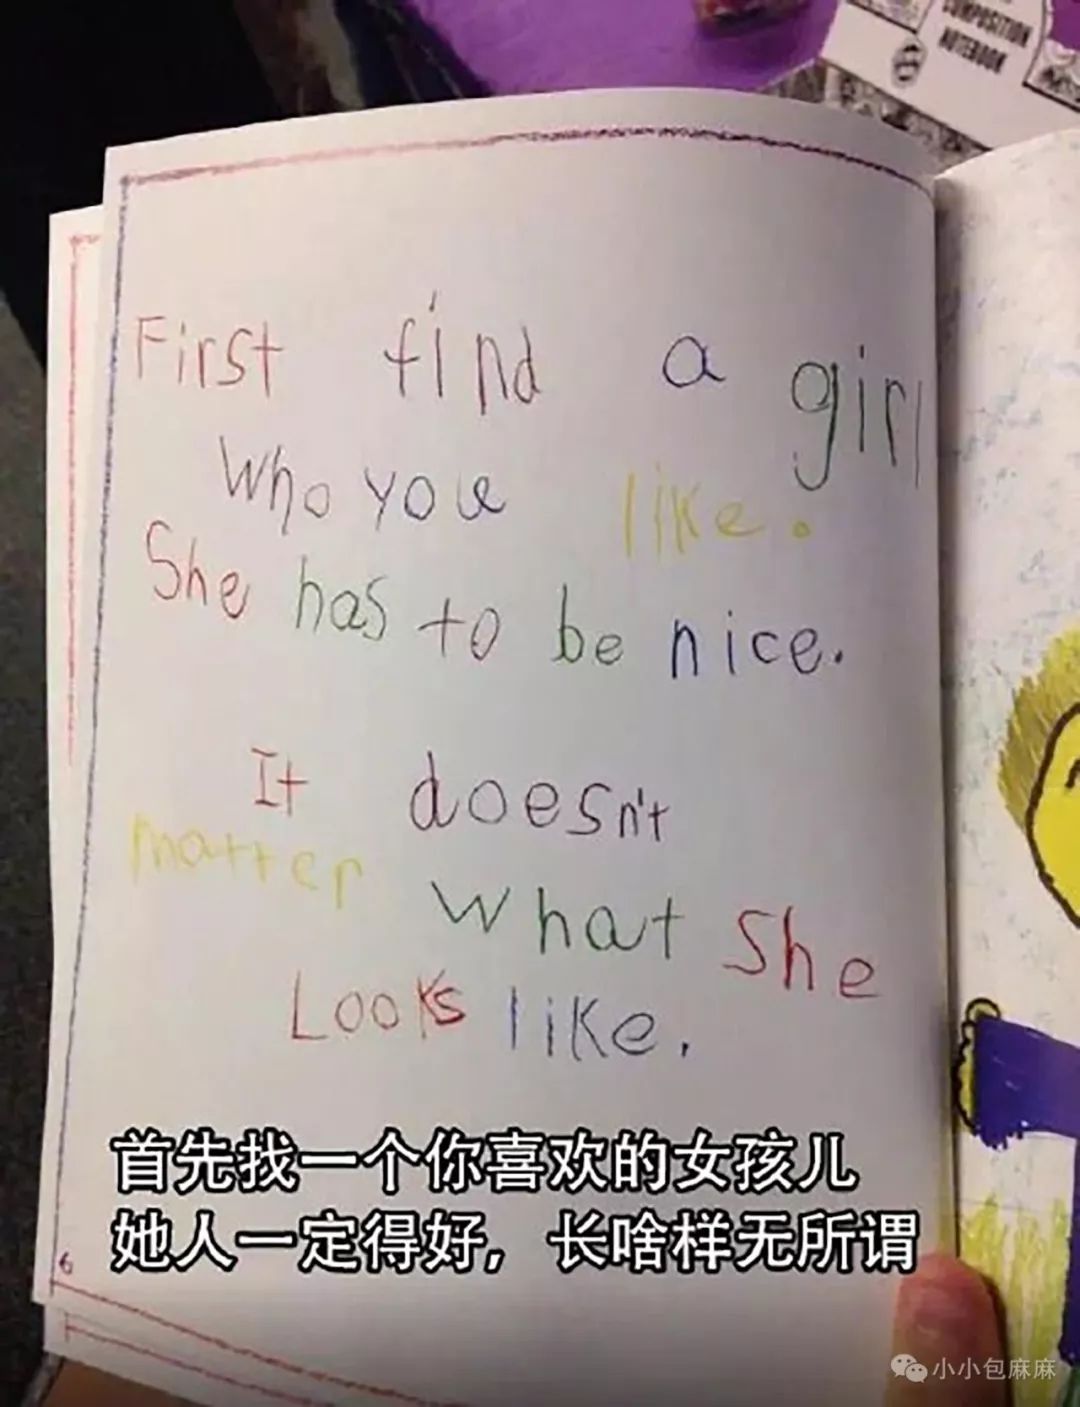 COMPOSITION
NOTEBOOK
First find a girl
who you like.
She has to be nice.
It doesn't
matter what She
Looks like.
首先找一个你喜欢的女孩儿
她人一定得好，长啥样无所谓
6
小小包麻麻